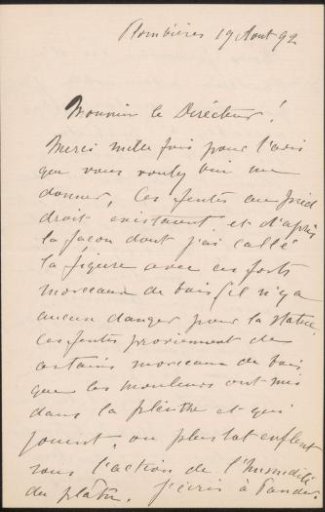 Plombières 19 Aout 92
Monsieur le Directeur!
Merci mille fois pour l'avis
que vous voulez bien me
donner, Ces fentes au pied
droit existaient et d'après
la façon dont j'ai callé
la figure avec ces forts
morceaux de bois il n'y a
aucun danger pour la statue.
Ces fentes proviennent de
certains morceaux de bois
que les mouleurs ont mis
dans la plinthe et qui
jouent, ou plustot enflent
sous l'action de l'humidité
du plâtre. J'écris à